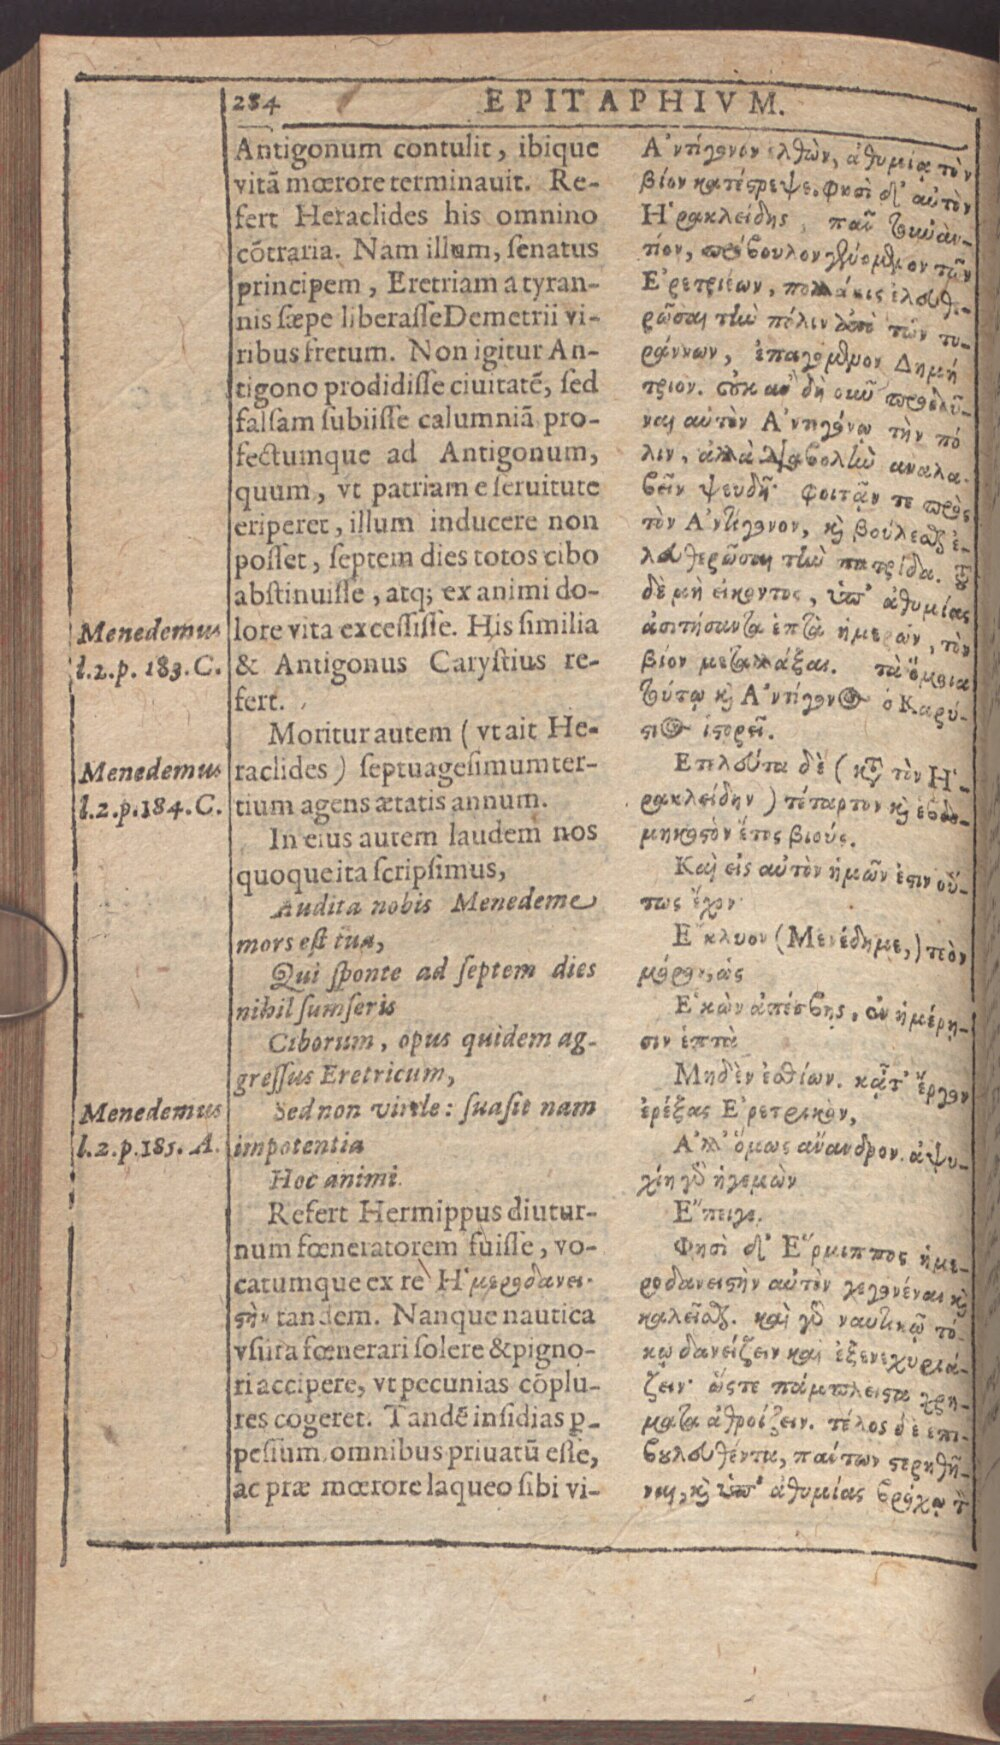 284 EPITAPHIVM.
Antigonum contulit, ibique
vitã mœrore terminauit. Re-
fert Heraclides his omnino
cõtraria. Nam illum, senatus
principem, Eretriam a tyran-
nis sæpe liberasse Demetrii vi-
ribus fretum. Non igitur An-
tigono prodidisse ciuitatẽ, sed
falsam subiisse calumniã pro-
fectumque ad Antigonum,
quum, vt patriam e seruitute
eriperet, illum inducere non
posset, septem dies totos cibo
abstinuisse, atq; ex animi do-
lore vita excessisse. His similia
& Antigonus Carystius re-
fert.
Moritur autem (vt ait He-
raclides) septuagesimum ter-
tium agens ætatis annum.
In eius autem laudem nos
quoque ita scripsimus,
Audita nobis Menedeme
mors est tua,
Qui sponte ad septem dies
nihil sumseris
Ciborum, opus quidem ag-
gressus Eretricum,
Sed non virile: suasit nam
impotentia
Hoc animi.
Refert Hermippus diutur-
num fœneratorem fuisse, vo-
catumque ex re Ἡμεροδανει-
στὴν tandem. Nanque nautica
vsura fœnerari solere & pigno-
ri accipere, vt pecunias cõplu-
res cogeret. Tandẽ insidias p̱-
pessum omnibus priuatũ esse,
ac præ mœrore laqueo sibi vi-
Menedemus
l.2.p.183.C.
Menedemus
l.2.p.184.C.
Menedemus
l.2.p.185.A.
Ἀντίγονον ἐλθὼν, ἀθυμίᾳ τὸν
βίον κατέστρεψε. Φησὶ δ' αὐτὸν
Ἡρακλείδης, πᾶν τοὐναν-
τίον, πρόβουλον γενόμενον τῶν
Ἐρετριέων, πολλάκις ἐλευθε-
ρῶσαι τὴν πόλιν ἀπὸ τῶν τυ-
ράννων, ἐπαγόμενον Δημή
τριον. οὐκ ἂν δὴ οὖν προδοῦ-
ναι αὐτὸν Ἀντιγόνῳ τὴν πό
λιν, ἀλλὰ διαβολὴν αναλα-
βεῖν ψευδῆ· φοιτᾷν τε πρὸς
τὸν Ἀντίγονον, καὶ βούλεσθαι ἐ-
λευθερῶσαι τὴν πατρίδα. τοῦ
δὲ μὴ εἴκοντος, ὑπ' ἀθυμίας
ἀσιτήσαντα ἑπτὰ ἡμέρας, τὸν
βίον μεταλλάξαι. τὰ ὅμοια
τούτῳ καὶ Ἀντίγονος ὁ Καρύ-
στιος ἱστορεῖ.
Ἐτελεύτα δὲ (κατὰ τὸν Ἡ-
ρακλείδην) τέταρτον καὶ ἑβδο-
μηκοστὸν ἔτος βιούς.
Καὶ εἰς αὐτὸν ἡμῶν ἐστιν οὕ-
τως ἔχον·
Ἔκλυον (Μενέδημε,) τεὸν
μόρον, ὡς
Ἑκὼν ἀπέσβης, ἐν ἡμέρῃ-
σιν ἑπτὰ
Μηδὲν ἐσθίων. κᾆτ' ἔργον
ἐρέξας Ἐρετρικὸν,
Ἀλλ' ὅμως ἄνανδρον. ἀψυ-
χίη γὰρ ἡγεμὼν
Ἔπειγε.
Φησὶ δ' Ἕρμιππος ἡμε-
ροδανειστὴν αὐτὸν γεγονέναι καὶ
καλεῖσθαι. καὶ γὰρ ναυτικῷ τό-
κῳ δανείζειν καὶ ἐξενεχυριά-
ζειν· ὥστε πάμπλειστα χρή-
ματα ἀθροίζειν. τέλος δὲ ἐπι-
βουλευθέντα, πάντων στερηθῆ-
ναι, καὶ ὑπ' ἀθυμίας βρόχῳ τὸ